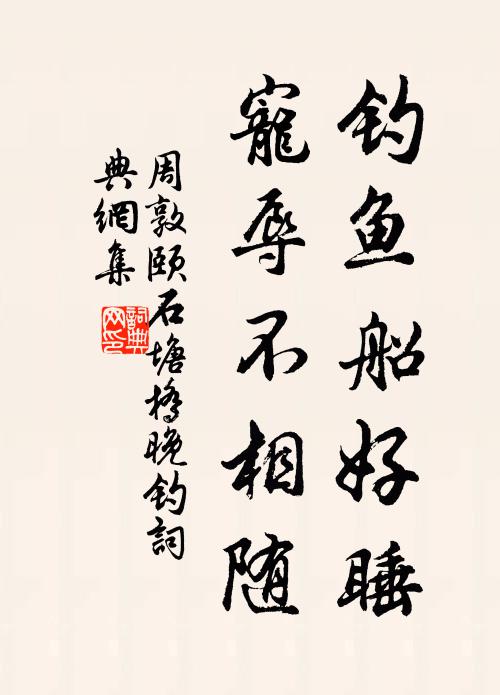 钓鱼船好睡
寵辱不相随
周敦颐石塘橋晚钓詞
典網集
詞典
网印